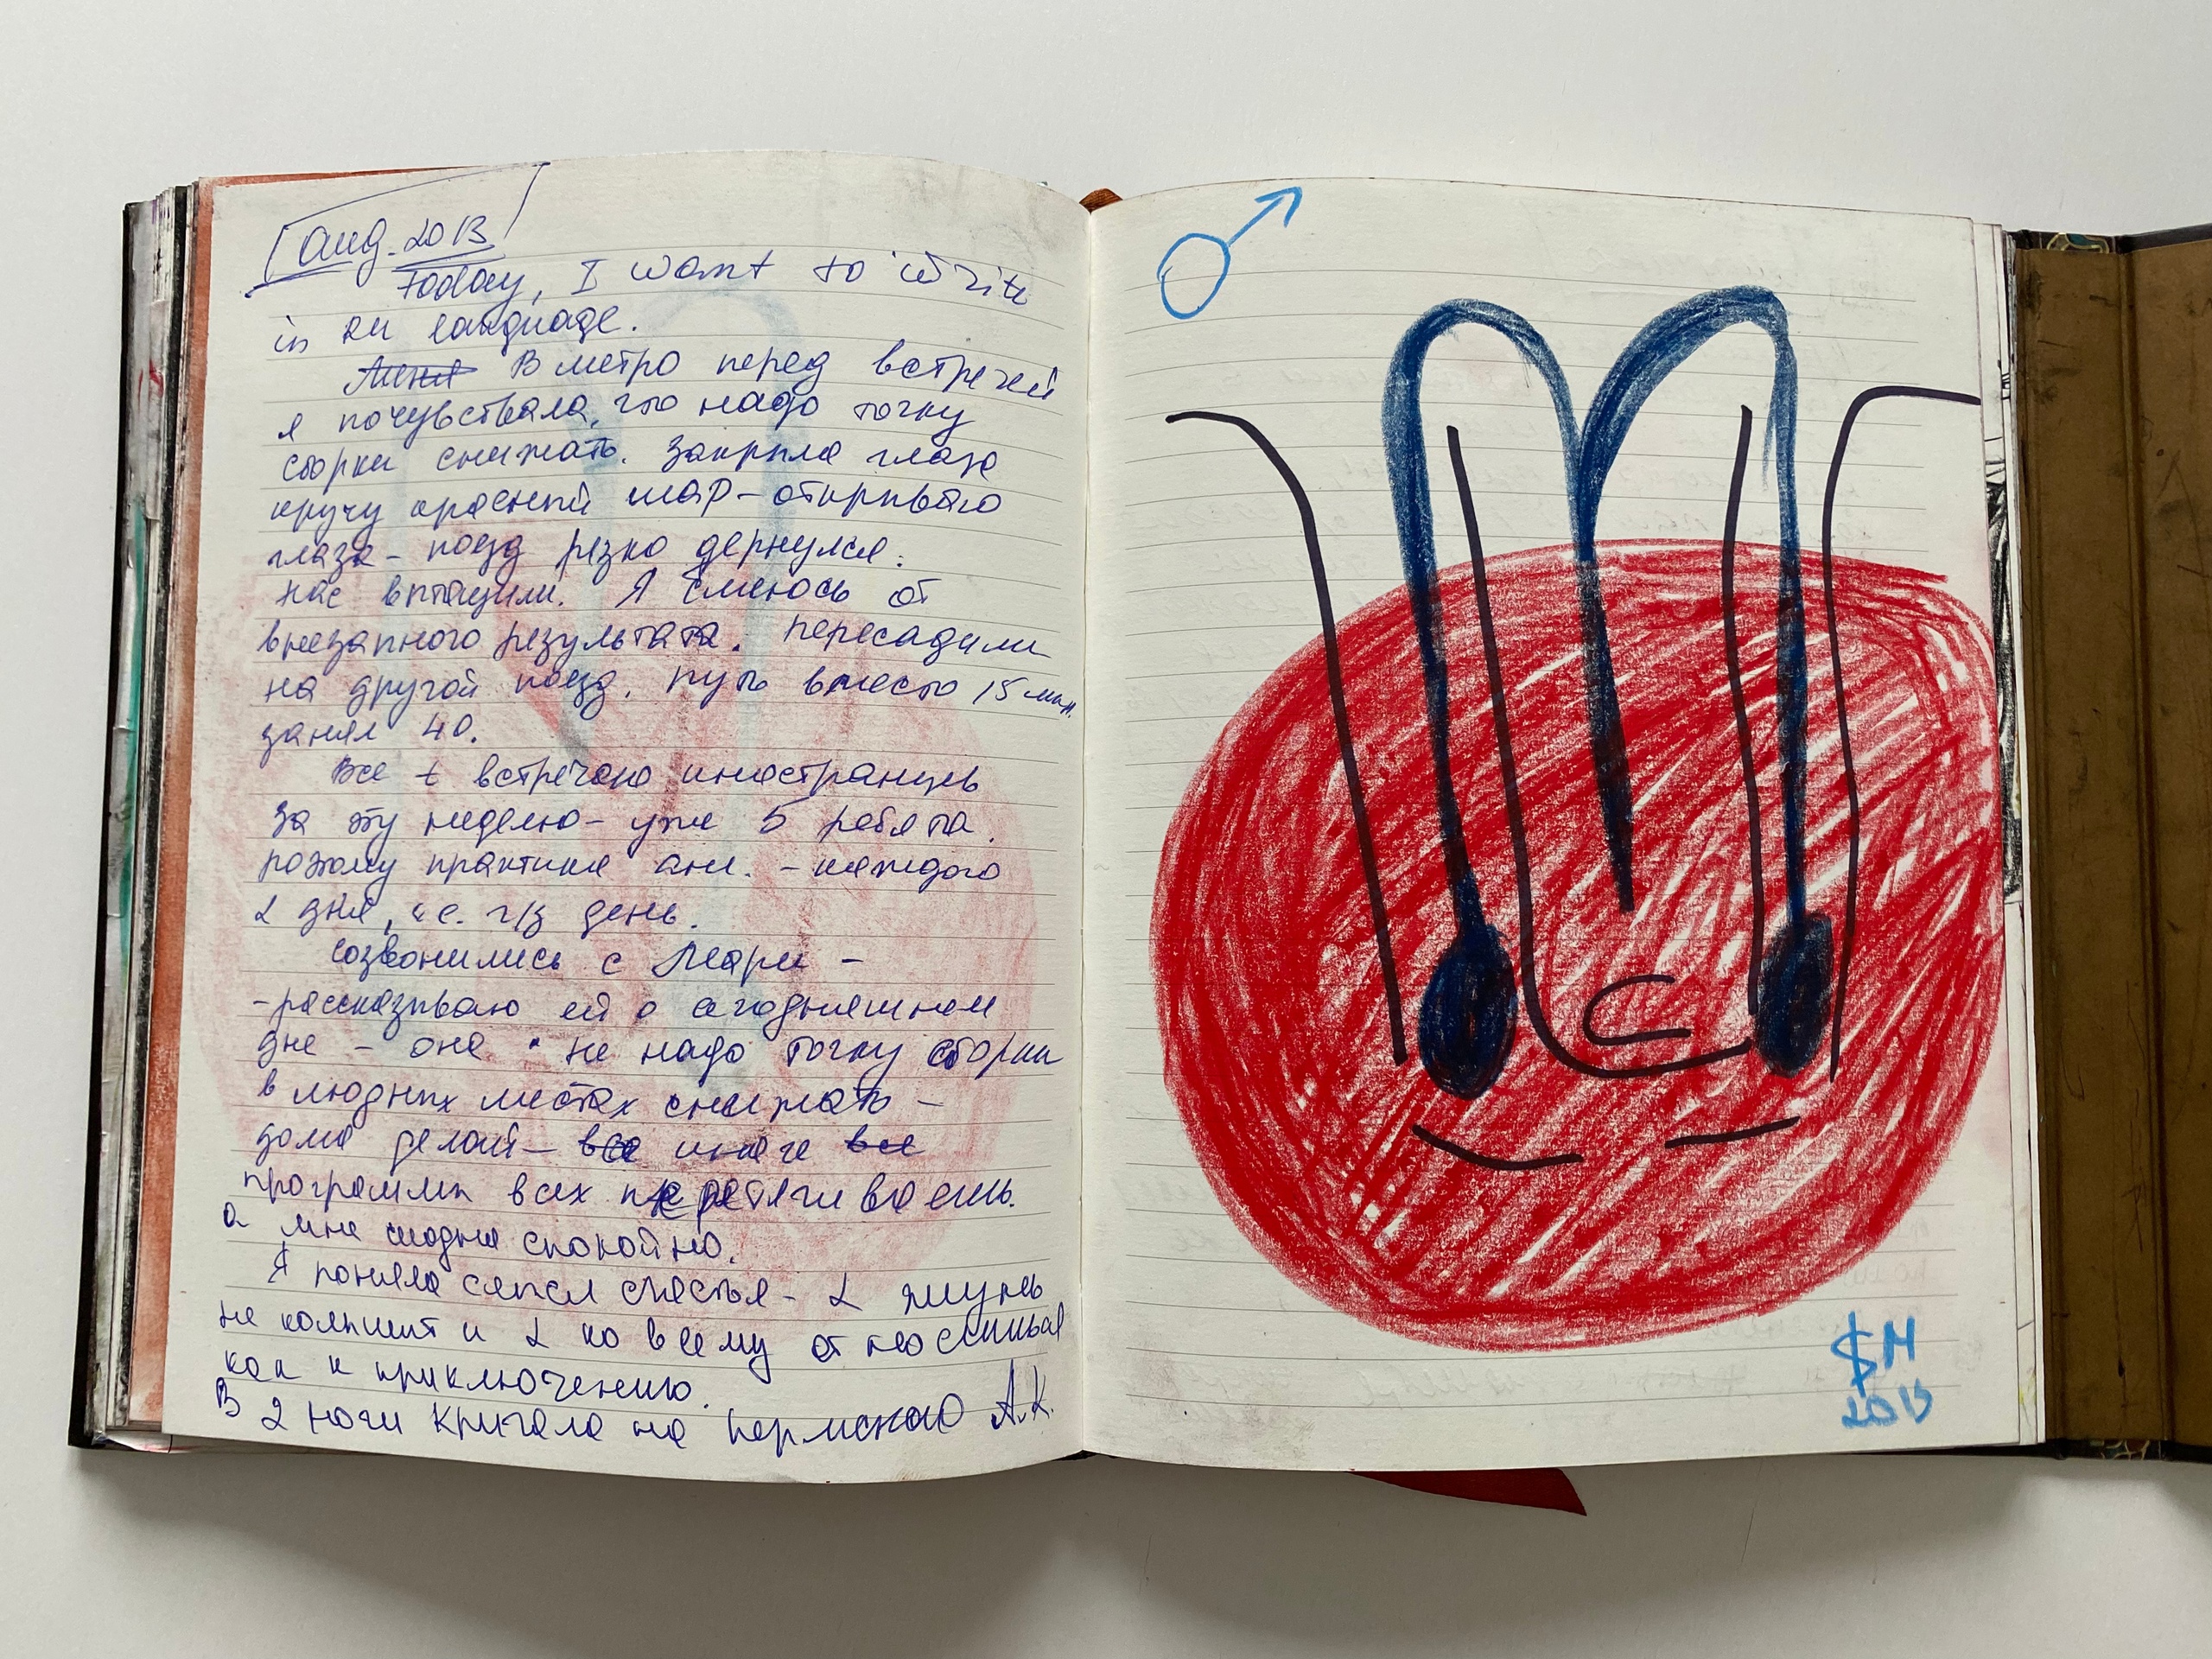 aug. 2013
Today, I want to write
in ru language.
В метро перед встречей
я почувствовала, что надо точку
сборки снижать. Закрыла глаза
кручу красный шар – открываю
глаза – поезд резко дернулся:
нас вытащили. Я смеюсь от
внезапного результата. Пересадили
на другой поезд. Путь вместо 15 мин.
занял 40.
Все t встречаю иностранцев
за эту неделю – уже 5 ребята.
поэтому практика анг. – каждого
2 дня, ч/з день.
Созвонились с Мари –
– рассказываю ей о сегодняшнем
дне – она не надо точку сборки
в людных местах снижать –
дома делай – иначе
программы всех
а мне сегодня спокойно.
Я поняла смысл счастья – 2
не и 2 ко всему
как к приключению.
В 2 ночи кричала на пермскаю А.К.
♂
$М
2013